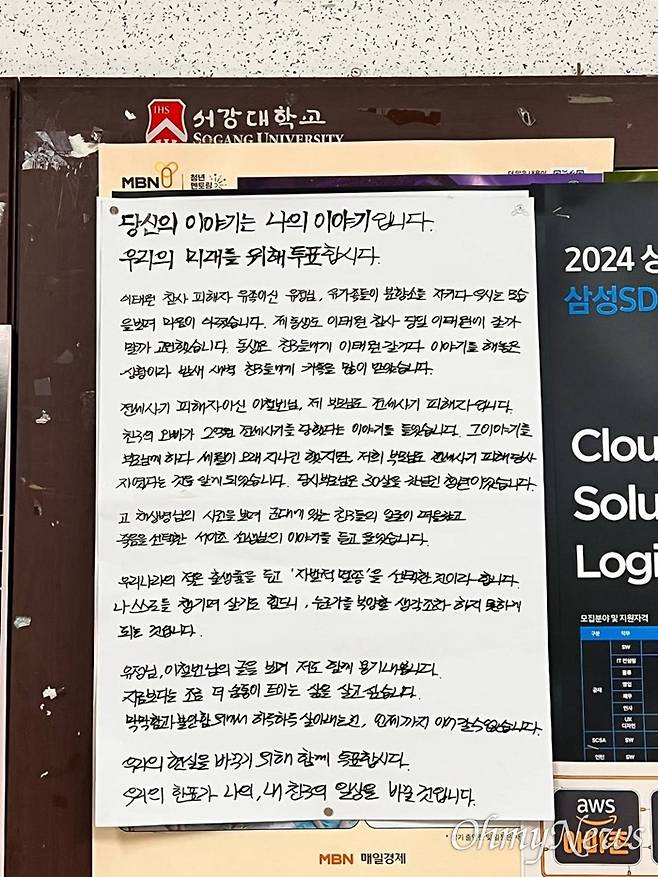 IHS
서강대학교
SOGANG UNIVERSITY
MBN
청년
멘토링
당신의 이야기는 나의 이야기입니다.
우리의 미래를 위해 투표합시다.
이태원 참사 피해자 유족이신 유정님, 유가족들이 분향소를 지키다 우시는 모습
을 보며 마음이 아팠습니다. 제 동생도 이태원 참사 당일 이태원에 갈까
말까 고민했습니다. 동생은 친구들에게 이태원 간다 이야기를 해놓은
상황이라 밤새 새벽 친구들에게 카톡을 많이 받았습니다.
전세사기 피해자이신 이철빈님, 제 부모님도 전세사기 피해자입니다.
친구의 오빠가 2억원 전세사기를 당했다는 이야기를 들었습니다. 그 이야기를
부모님께 하다 세월이 오래 지나긴 했지만 저희 부모님도 전세사기 피해 당사
자였다는 것을 알게 되었습니다. 당시 부모님은 30살을 하던 청년이었습니다.
고 채상병님의 사건을 보며 군대에 있는 친구들의 얼굴이 떠올랐고
죽음을 선택한 서이초 선생님의 이야기를 듣고 울었습니다.
우리나라의 적은 출생률을 두고 '자발적 멸종'을 선택한 것이라 합니다.
나 스스로를 챙기며 살기도 힘드니, 누군가를 부양할 생각조차 하지 못하게
되는 것입니다.
유정님, 이철빈님의 글을 보며 저도 함께 용기내봅니다.
지금보다는 조금 더 숨통이 트이는 삶을 살고 싶습니다.
막막함과 불안함 위에서 하루하루 살아내는 건, 언제까지 이어갈 수 없습니다.
우리의 현실을 바꾸기 위해 함께 투표합시다.
우리의 한표가 나의, 내 친구의 일상을 바꿀 것입니다.
MBN 매일경제
2024 상
삼성SD
Clou
Solu
Logi
모집분야 및 지원자격
구분 직무
공채
SW
IT 컨설팅
물류
영업
재무
인사
UX
디자인
SCSA SW
인턴 SW
aws
OhmyNews